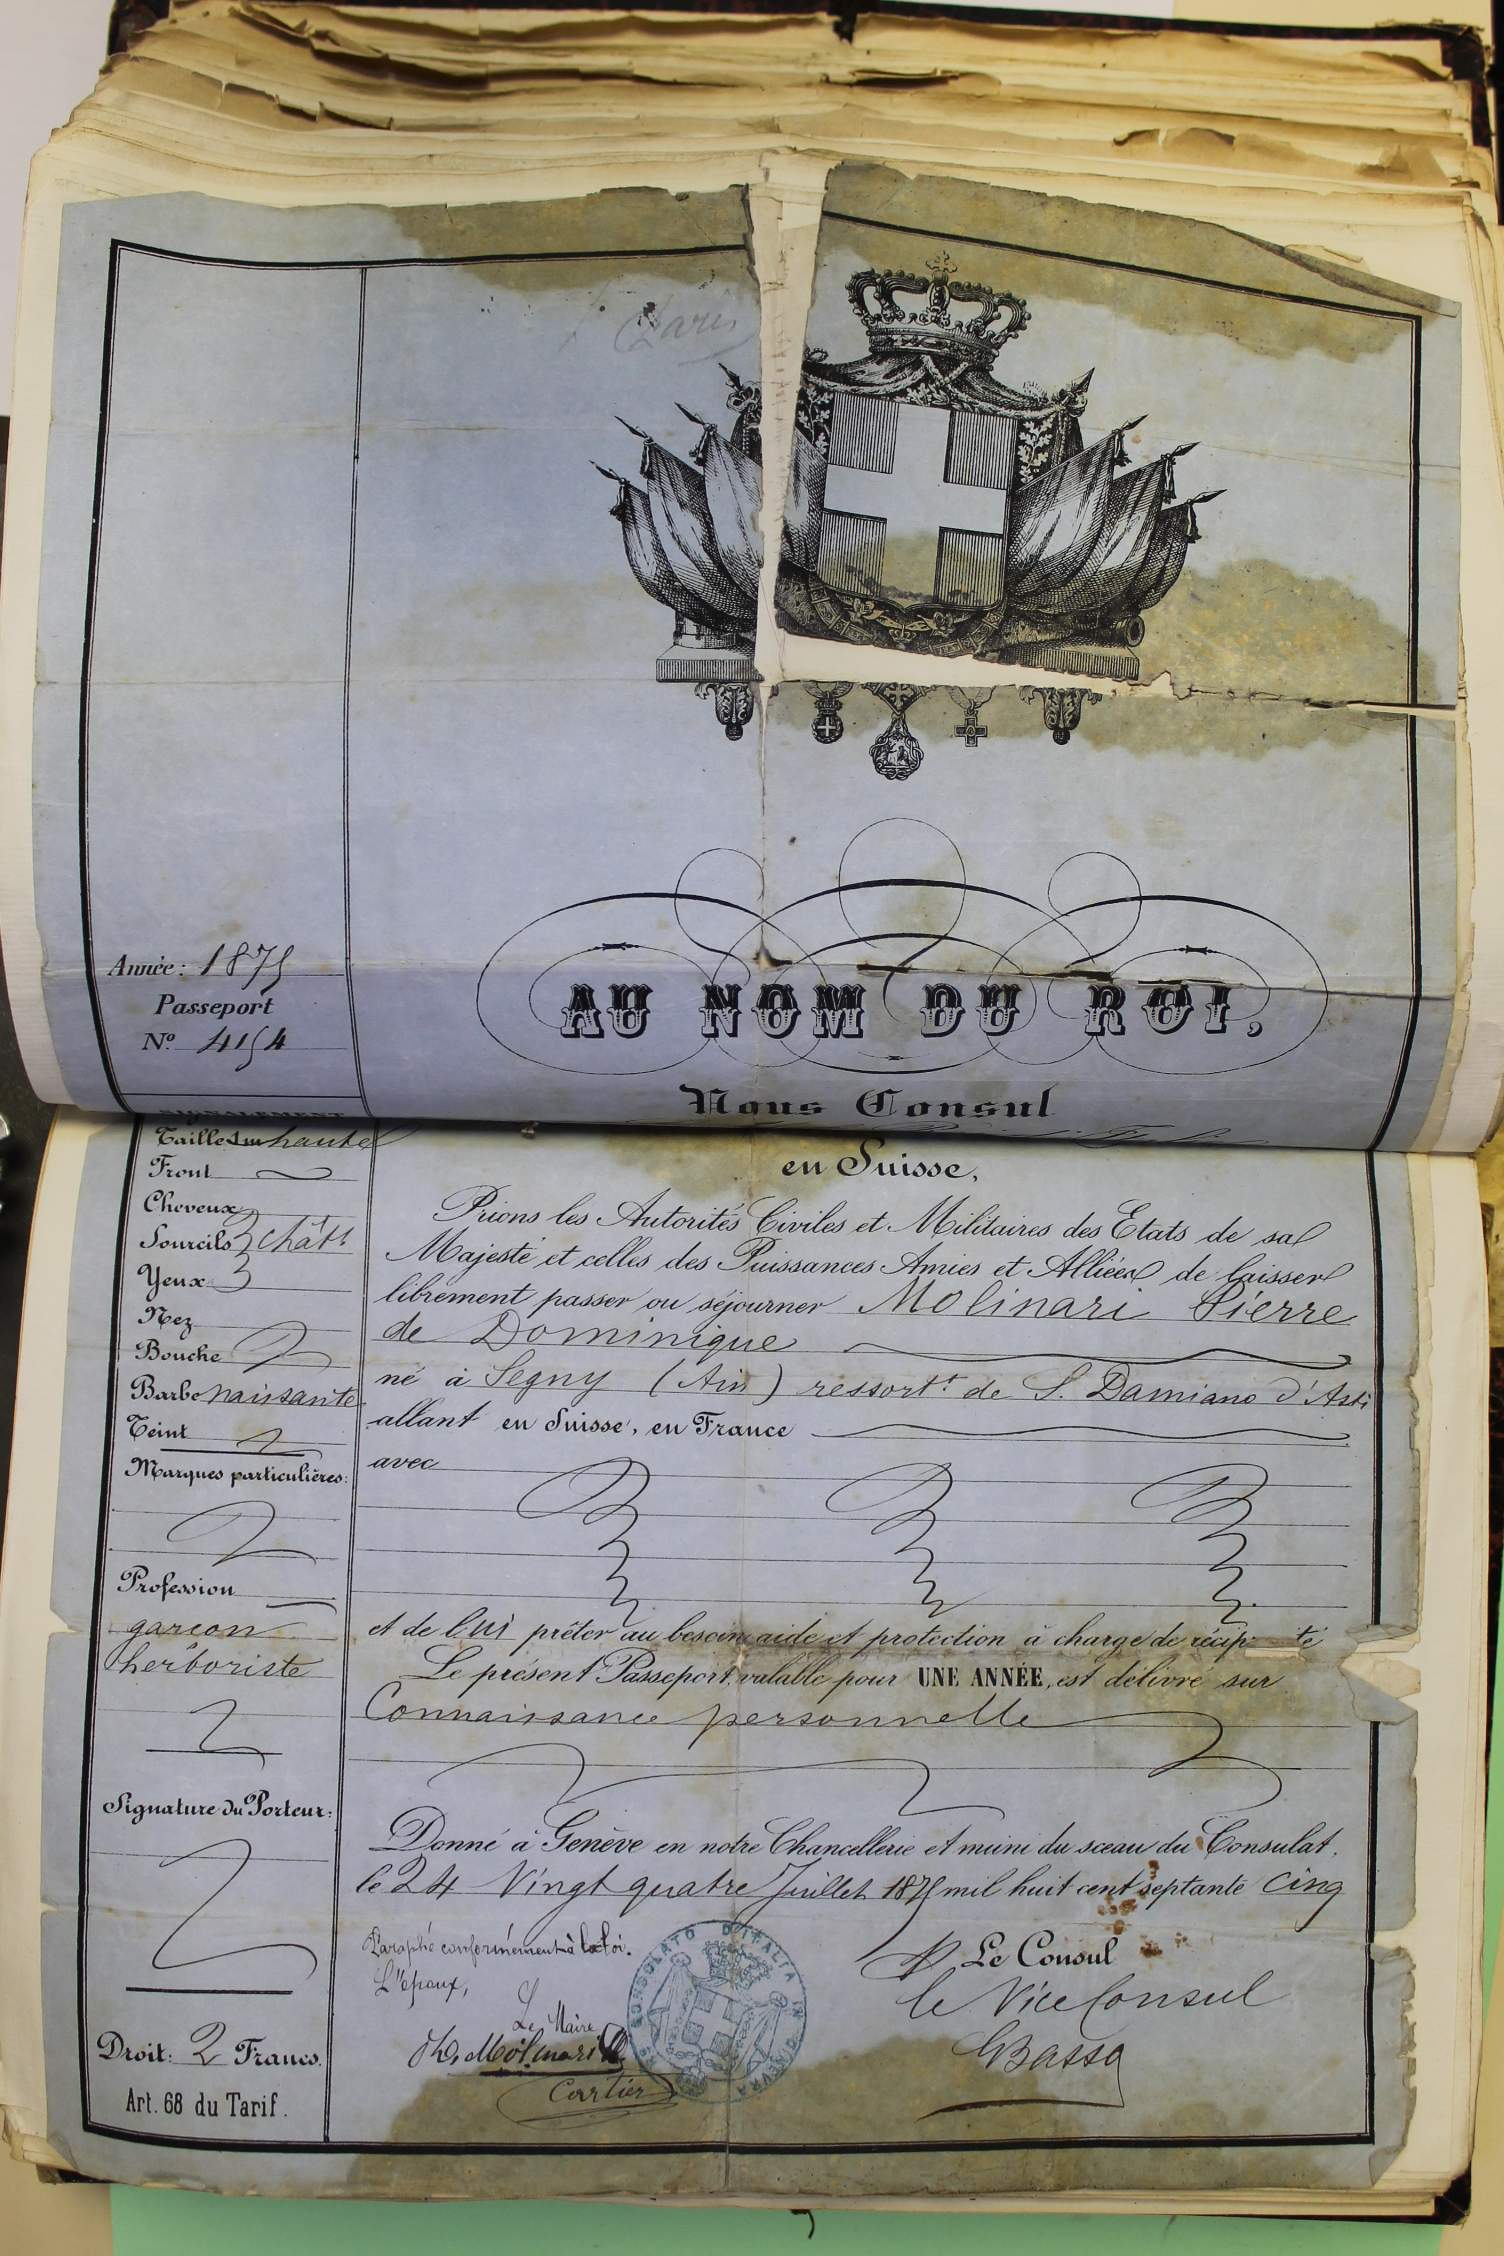 Paris
Année: 1875
Passeport
N° 4154
AU NOM DU ROI,
Nous Consul
SIGNALEMENT
Taille haute
Front
Cheveux
Sourcils chât.
Yeux
Nez
Bouche
Barbe naissante
Teint
Marques particulières:
Profession
garçon
herboriste
Signature du Porteur:
Droit: 2 Francs.
Art. 68 du Tarif.
en Suisse,
Prions les Autorités Civiles et Militaires des Etats de sa
Majesté et celles des Puissances Amies et Alliées de laisser
librement passer ou séjourner Molinari Pierre
de Dominique
né à Segny (Ain) ressort.t de S. Damiano d'Asti
allant en Suisse, en France
avec
et de lui prêter au besoin aide et protection à charge de récip té
Le présent Passeport, valable pour UNE ANNÉE, est délivré sur
Connaissance personnelle
Donné à Genève en notre Chancellerie et muni du sceau du Consulat,
le 24 Vingt quatre Juillet 1875 mil huit cent septante cinq
Paraphé conformément à la loi.
L'époux,
Le Maire
Molinari
Cartier
CONSOLATO D'ITALIA IN GINEVRA
Le Consul
le Vice Consul
Basso